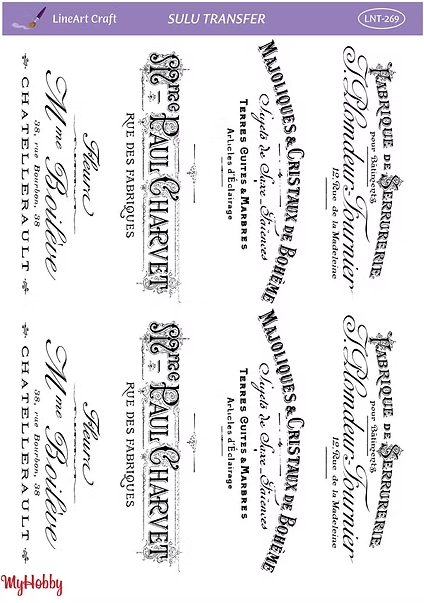 LineArt Craft
SULU TRANSFER
LNT-269
FABRIQUE DE SERRURERIE
pour Bâtiments
J. Plomdeur Fournier
12, Rue de la Madeleine
MAJOLIQUES & CRISTAUX DE BOHÈME
Objets de Luxe Faïences
TERRES CUITES & MARBRES
Articles d'Éclairage
Mnce PAUL CHARVET
RUE DES FABRIQUES
Fleurs
Mme Boilève
38, rue Bourbon, 38
CHATELLERAULT
FABRIQUE DE SERRURERIE
pour Bâtiments
J. Plomdeur Fournier
12, Rue de la Madeleine
MAJOLIQUES & CRISTAUX DE BOHÈME
Objets de Luxe Faïences
TERRES CUITES & MARBRES
Articles d'Éclairage
Mnce PAUL CHARVET
RUE DES FABRIQUES
Fleurs
Mme Boilève
38, rue Bourbon, 38
CHATELLERAULT
MyHobby